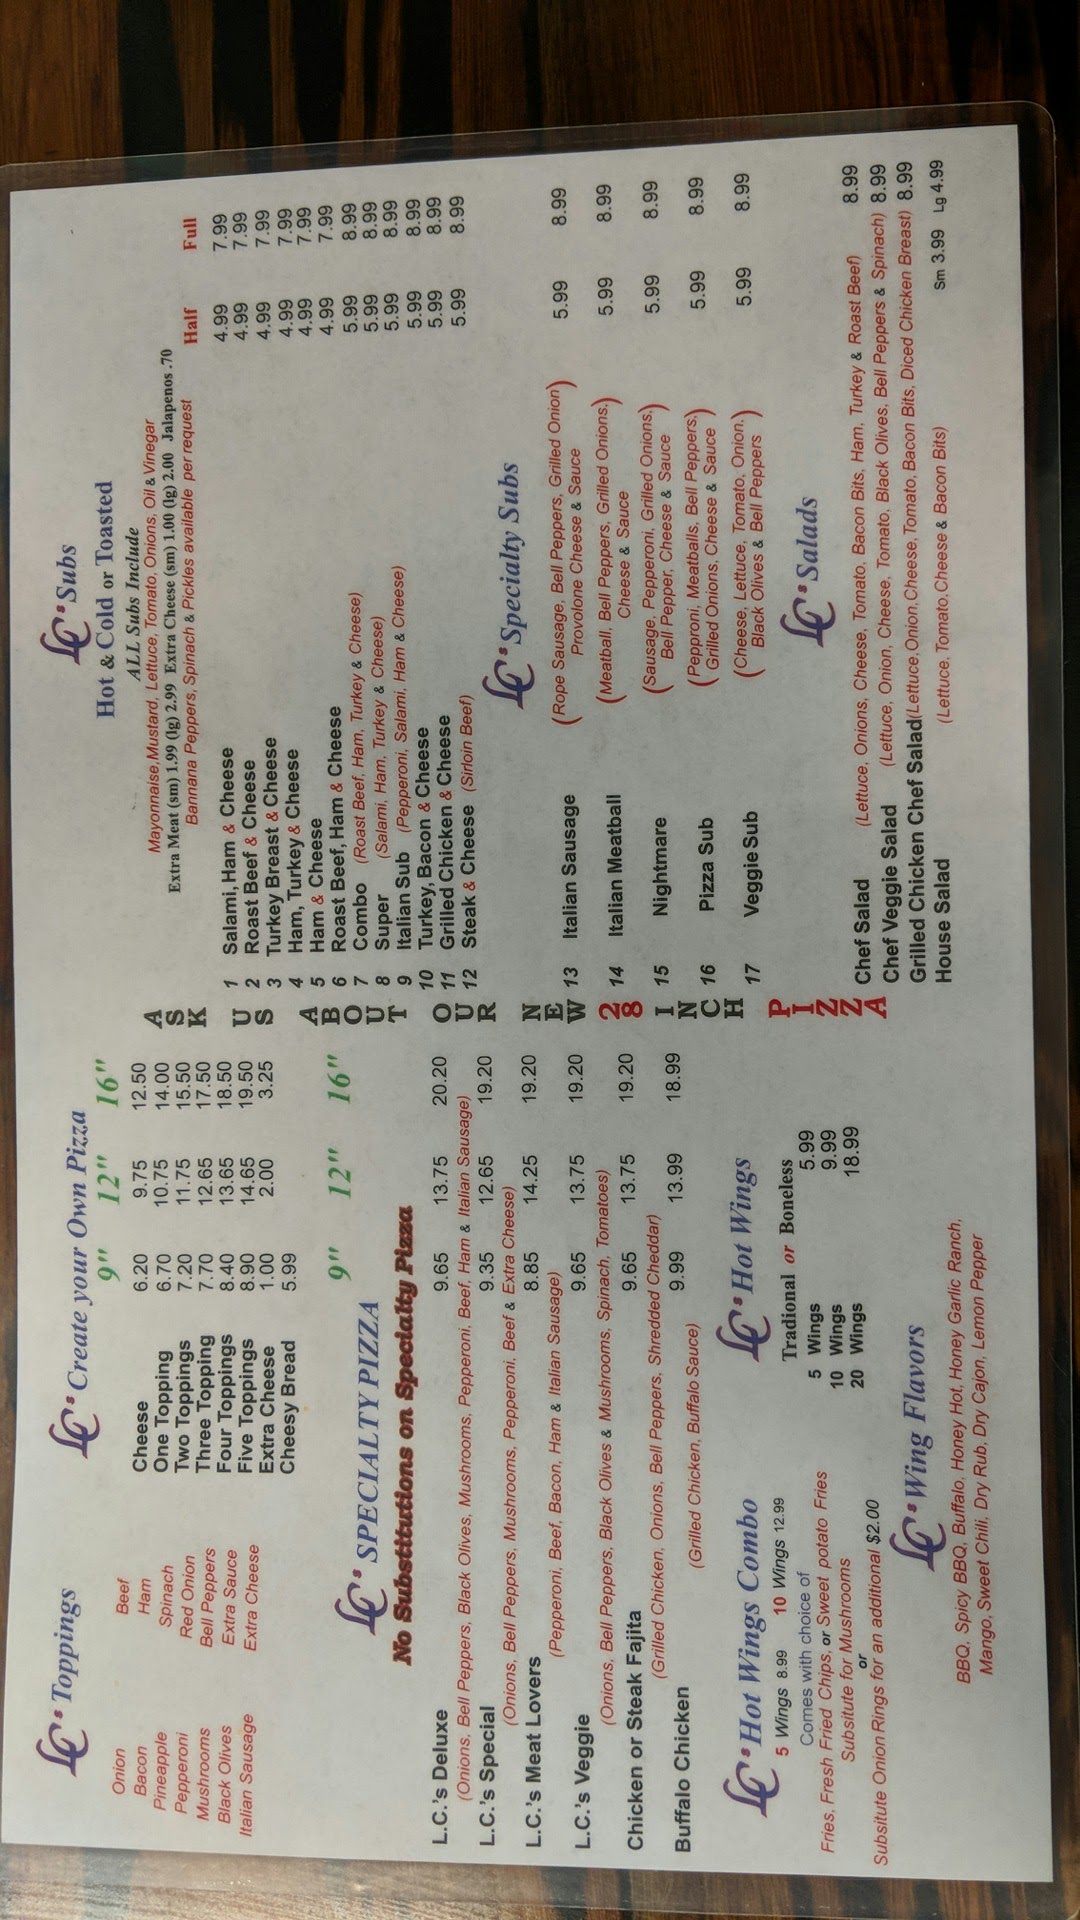 LC's Toppings
Onion Beef
Bacon Ham
Pineapple Spinach
Pepperoni Red Onion
Mushrooms Bell Peppers
Black Olives Extra Sauce
Italian Sausage Extra Cheese
LC's Create your Own Pizza
9" 12" 16"
Cheese 6.20 9.75 12.50
One Topping 6.70 10.75 14.00
Two Toppings 7.20 11.75 15.50
Three Topping 7.70 12.65 17.50
Four Toppings 8.40 13.65 18.50
Five Toppings 8.90 14.65 19.50
Extra Cheese 1.00 2.00 3.25
Cheesy Bread 5.99
LC's SPECIALTY PIZZA 9" 12" 16"
No Substitutions on Specialty Pizza
L.C.'s Deluxe 9.65 13.75 20.20
(Onions, Bell Peppers, Black Olives, Mushrooms, Pepperoni, Beef, Ham & Italian Sausage)
L.C.'s Special 9.35 12.65 19.20
(Onions, Bell Peppers, Mushrooms, Pepperoni, Beef & Extra Cheese)
L.C.'s Meat Lovers 8.85 14.25 19.20
(Pepperoni, Beef, Bacon, Ham & Italian Sausage)
L.C.'s Veggie 9.65 13.75 19.20
(Onions, Bell Peppers, Black Olives & Mushrooms, Spinach, Tomatoes)
Chicken or Steak Fajita 9.65 13.75 19.20
(Grilled Chicken, Onions, Bell Peppers, Shredded Cheddar)
Buffalo Chicken 9.99 13.99 18.99
(Grilled Chicken, Buffalo Sauce)
LC's Hot Wings Combo
5 Wings 8.99 10 Wings 12.99
Comes with choice of
Fries, Fresh Fried Chips, or Sweet potato Fries
Subsitute for Mushrooms
or
Subsitute Onion Rings for an additional $2.00
LC's Hot Wings
Tradional or Boneless
5 Wings 5.99
10 Wings 9.99
20 Wings 18.99
LC's Wing Flavors
BBQ, Spicy BBQ, Buffalo, Honey Hot, Honey Garlic Ranch,
Mango, Sweet Chili, Dry Rub, Dry Cajon, Lemon Pepper
ASK US ABOUT OUR NEW 28 INCH PIZZA
LC's Subs
Hot & Cold or Toasted
ALL Subs Include
Mayonnaise,Mustard, Lettuce, Tomato, Onions, Oil & Vinegar
Extra Meat (sm) 1.99 (lg) 2.99 Extra Cheese (sm) 1.00 (lg) 2.00 Jalapenos .70
Bannana Peppers, Spinach & Pickles available per request
Half Full
1 Salami, Ham & Cheese 4.99 7.99
2 Roast Beef & Cheese 4.99 7.99
3 Turkey Breast & Cheese 4.99 7.99
4 Ham, Turkey & Cheese 4.99 7.99
5 Ham & Cheese 4.99 7.99
6 Roast Beef, Ham & Cheese 4.99 7.99
7 Combo (Roast Beef, Ham, Turkey & Cheese) 5.99 8.99
8 Super (Salami, Ham, Turkey & Cheese) 5.99 8.99
9 Italian Sub (Pepperoni, Salami, Ham & Cheese) 5.99 8.99
10 Turkey, Bacon & Cheese 5.99 8.99
11 Grilled Chicken & Cheese 5.99 8.99
12 Steak & Cheese (Sirloin Beef) 5.99 8.99
LC's Specialty Subs
13 Italian Sausage (Rope Sausage, Bell Peppers, Grilled Onion) 5.99 8.99
Provolone Cheese & Sauce
14 Italian Meatball (Meatball, Bell Peppers, Grilled Onions,) 5.99 8.99
Cheese & Sauce
15 Nightmare (Sausage, Pepperoni, Grilled Onions,) 5.99 8.99
Bell Pepper, Cheese & Sauce
16 Pizza Sub (Pepproni, Meatballs, Bell Peppers,) 5.99 8.99
Grilled Onions, Cheese & Sauce
17 Veggie Sub (Cheese, Lettuce, Tomato, Onion,) 5.99 8.99
Black Olives & Bell Peppers
LC's Salads
Chef Salad (Lettuce, Onions, Cheese, Tomato, Bacon Bits, Ham, Turkey & Roast Beef) 8.99
Chef Veggie Salad (Lettuce, Onion, Cheese, Tomato, Black Olives, Bell Peppers & Spinach) 8.99
Grilled Chicken Chef Salad(Lettuce,Onion,Cheese,Tomato, Bacon Bits, Diced Chicken Breast) 8.99
House Salad (Lettuce, Tomato,Cheese & Bacon Bits) Sm 3.99 Lg 4.99